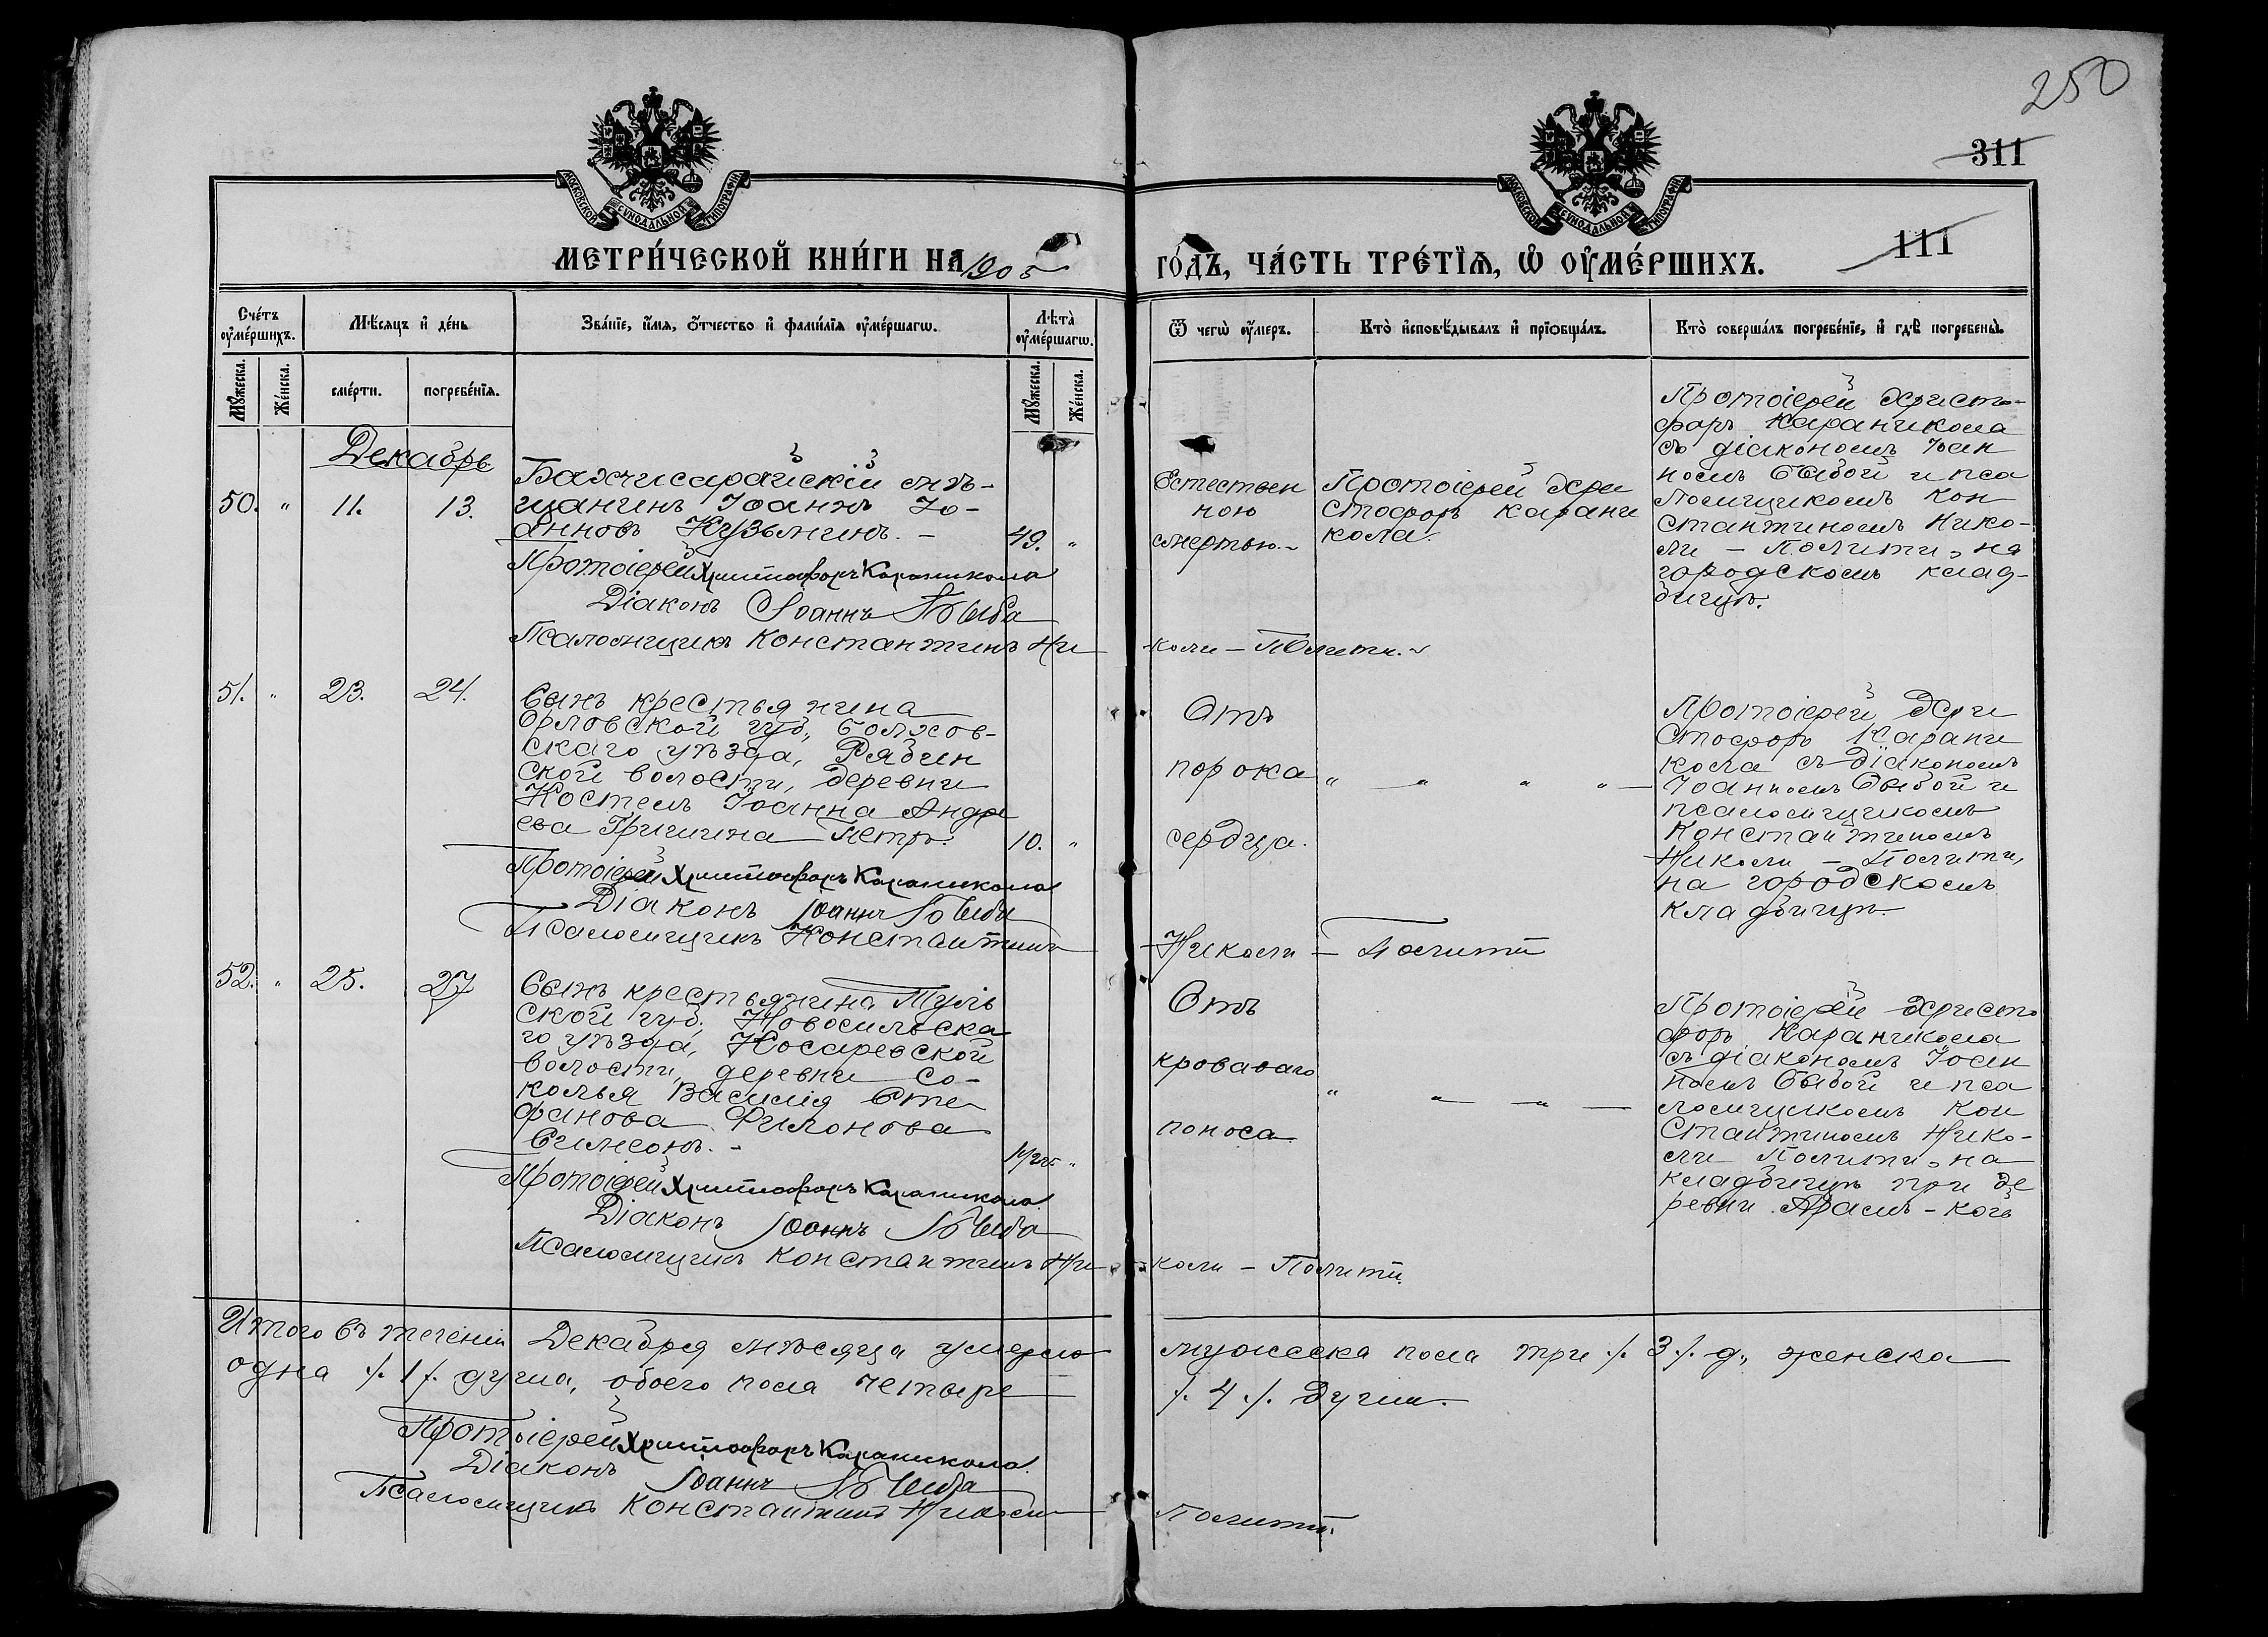 250
311
111
МОСКОВСКОЙ СѴНОДАЛЬНОЙ ТИПОГРАФІИ
МОСКОВСКОЙ СѴНОДАЛЬНОЙ ТИПОГРАФІИ
МЕТРИ́ЧЕСКОЙ КНИ́ГИ НА 1905
ГО́ДЪ, ЧА́СТЬ ТРЕ́ТІѦ, Ѡ ОУМЕ́РШИХЪ.
Сче́тъ оумершихъ.
Мѣсяцъ и де́нь
Зва́нїе, и́мѧ, о́тчество и фами́лїѧ оуме́ршагѡ.
Лѣта̀ оуме́ршагѡ.
Ѿ чегѡ̀ оу́меръ.
Кто̀ исповѣ́дывалъ и прїѡбща́лъ.
Кто̀ соверша́лъ погребе́нїе, и гдѣ̀ погребены̀.
Мꙋ́жеска.
Же́нска.
сме́рти.
погребе́нїѧ.
Мꙋ́жеска.
Же́нска.
Декабрь
50. " 11. 13.
Бахчисарайскій мѣ-
щанинъ Іоаннъ Іо-
анновъ Кузьминъ. — 49. "
Протоіерей Христофоръ Караникола
Діаконъ Іоаннъ Быба
Псаломщикъ Константинъ Ни
коли - Политы.
Естествен
ною
смертью.
Протоіерей Хри
стофоръ Карани
кола.
Протоіерей Христо-
форъ Караникола
съ діакономъ Іоан
номъ Быбой и пса
ломщикомъ Кон
стантиномъ Нико-
ли - Полити, на
городскомъ клад-
бищѣ.
51. " 23. 24.
Сынъ крестьянина
Орловской губ., Болхов-
скаго уѣзда, Рябин
ской волости, деревни
Костемъ Іоанна Андре
ева Гришина Петръ. 10. "
Протоіерей Христофоръ Караникола
Діаконъ Іоаннъ Быба
Псаломщикъ Константинъ
Николи - Политы
Отъ
порока
сердца.
" — " " —
Протоіерей Хри
стофоръ Карани
кола съ діакономъ
Іоанномъ Быбой и
псаломщикомъ
Константиномъ
Николи - Политы,
на городскомъ
кладбищѣ.
52. " 25. 27
Сынъ крестьянина Туль
ской губ. Новосильска
го уѣзда, Косаревской
волости, деревни Со-
колья Василія Сте
фанова Филонова
Симеонъ. -
Протоіерей Христофоръ Караникола
Діаконъ Іоаннъ Быба
Псаломщикъ Константинъ Ни
коли - Политы.
Отъ
кроваваго
поноса
" " — " —
Протоіерей Христо
форъ Караникола
съ діакономъ Іоан
номъ Быбой и пса
ломщикомъ Кон
стантиномъ Нико-
ли Политы, на
кладбищѣ при де
ревни
Итого въ теченіи Декабря мѣсяца умерло мужеска пола три /. 3 /. д., женска
одна /. 1 /. душа, обоего пола четыре /. 4 /. души.
Протоіерей Христофоръ Караникола
Діаконъ Іоаннъ Быба
Псаломщикъ Константинъ Николи
Политы.